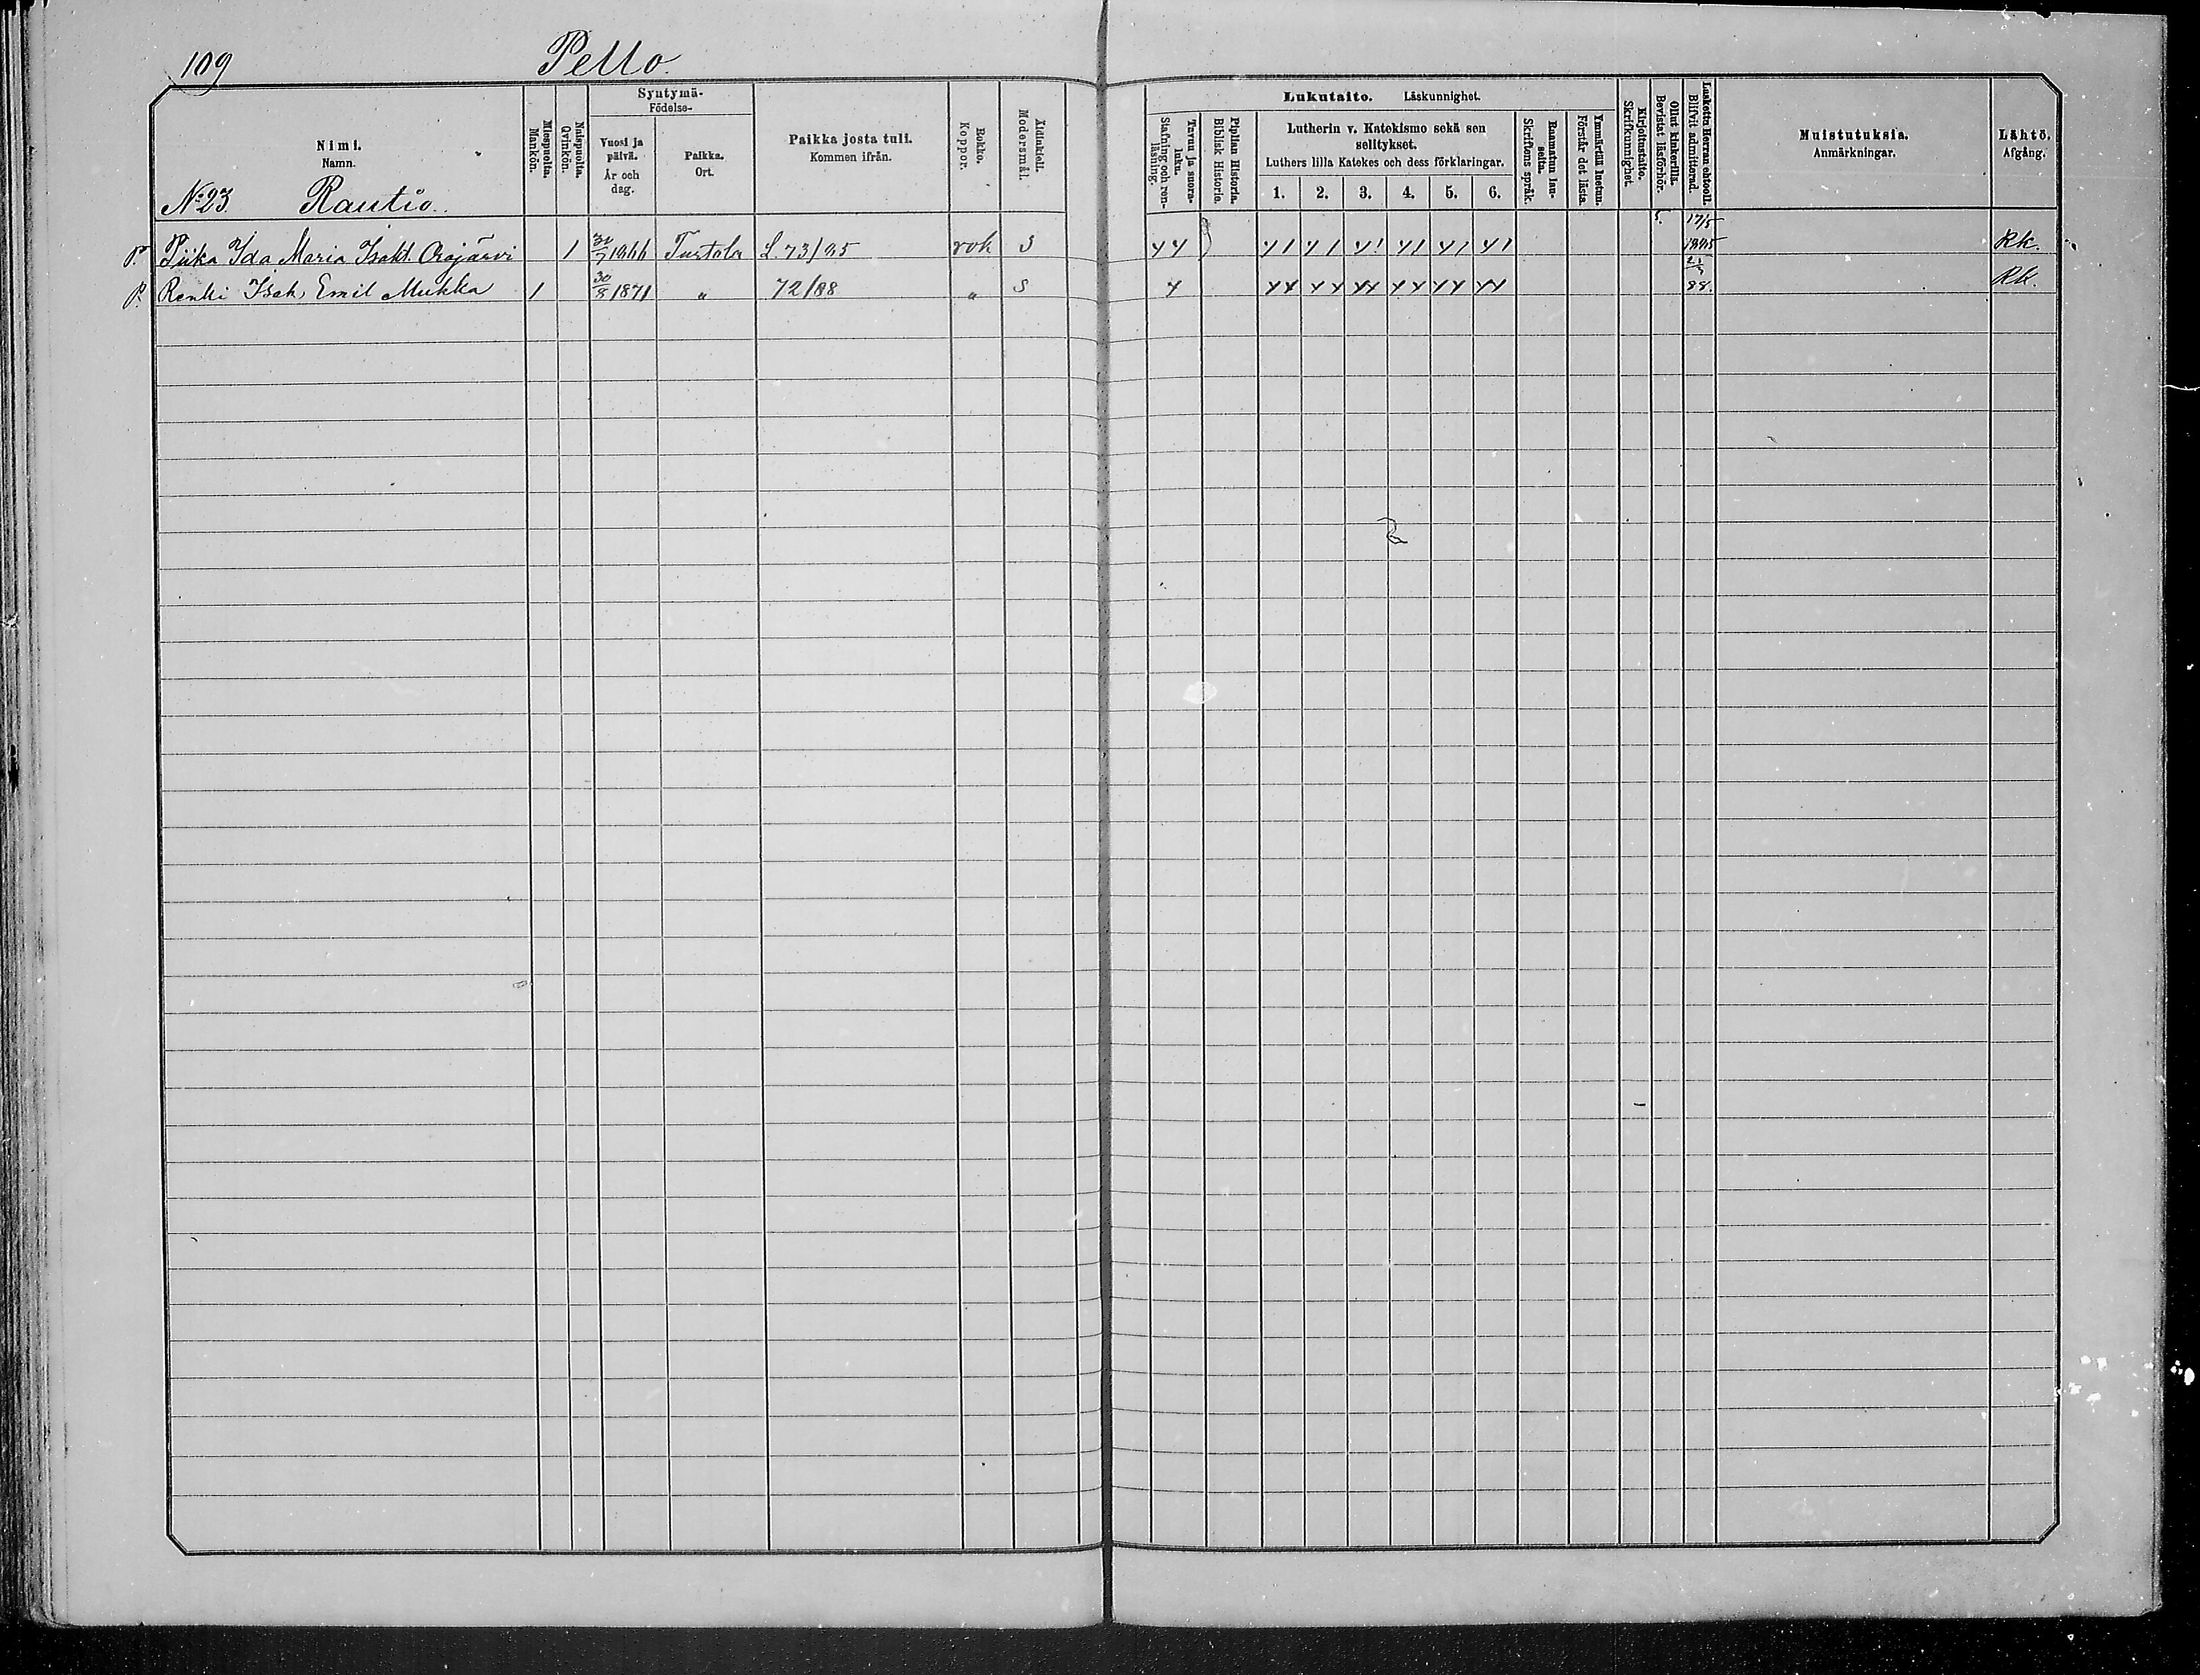 109 Pello.
Syntymä-
Födelse-
Nimi.
Namn.
Miespuolia.
Mankön.
Naispuolia.
Qvinkön.
Vuosi ja päivä.
År och dag.
Paikka.
Ort.
Paikka josta tuli.
Kommen ifrån.
Rokko.
Koppor.
Äidinkieli.
Modersmål.
Lukutaito. Läskunnighet.
Tavuu ja suora-luku.
Stafning och ren-läsning.
Piplian Historia.
Biblisk Historie.
Lutherin v. Katekismo sekä sen
selitykset.
Luthers lilla Katekes och dess förklaringar.
1. 2. 3. 4. 5. 6.
Raamatun lau-seita.
Skriftens språk.
Ymmärtää luetun.
Förstår det lästa.
Kirjoitustaito.
Skrifkunnighet.
Ollut kinkerillä.
Bevistat läsförhör.
Laskettu Herran ehtooll.
Blifvit admitterad.
Muistutuksia.
Anmärkningar.
Lähtö.
Afgång.
No 23. Rautio.
P. Piika Ida Maria Isakt. Orajärvi 1 1866 Turtola L. 73/85 rok S 17/5 1885 Rk.
P. Renki Isak Emil Mukka 1 30/8 1871 " 72/88 " S 88. Rk.